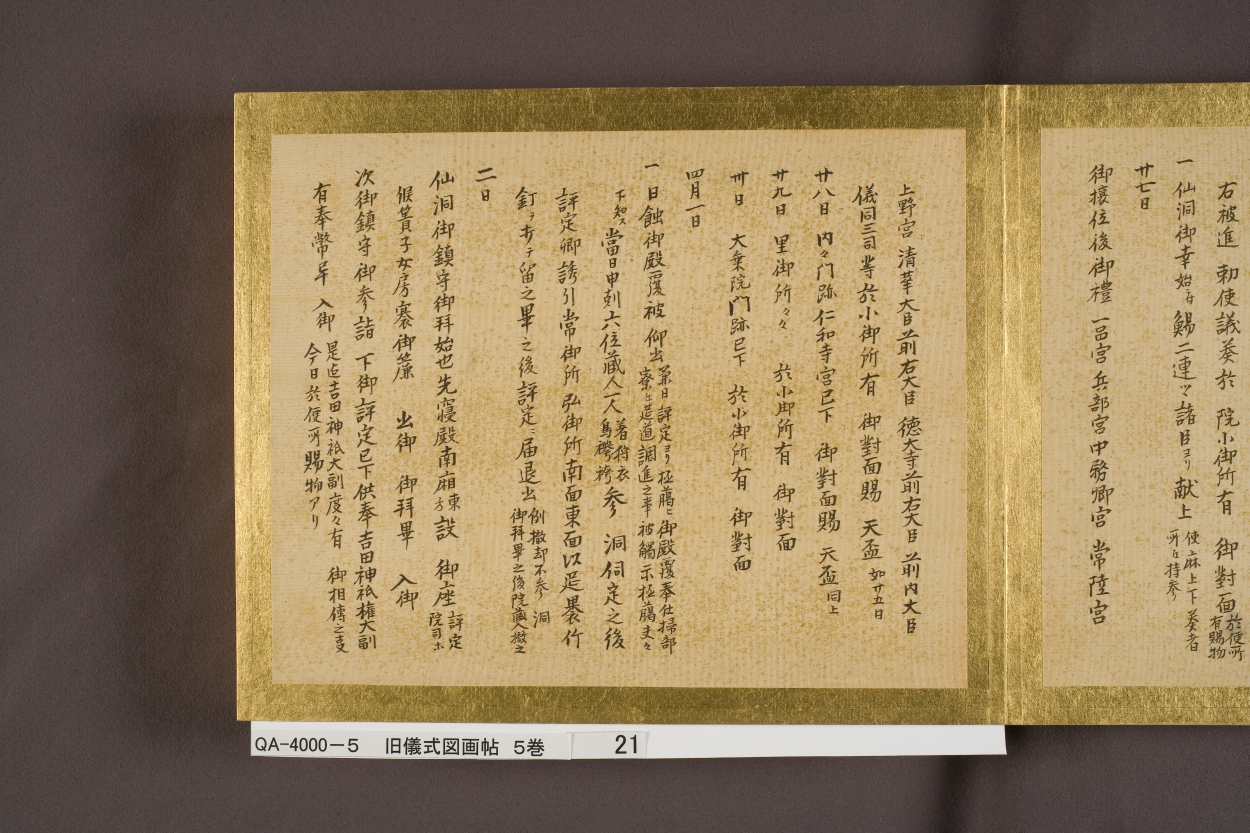 右被進 勅使議奏於 院小御所有 御對面於便所有賜物
一仙洞御幸始ニ付鯣二連ツヽ諸臣ヨリ献上 使麻上下奏者所ヘ持参
廿七日
御攘位後御禮 一品宮 兵部宮 中務卿宮 常陸宮
上野宮 清華大臣 前右大臣 徳大寺前右大臣 前内大臣
儀同三司等於小御所有 御對面賜 天盃 如廿五日
廿八日 内々門跡仁和寺宮已下 御對面賜 天盃同上
廿九日 里御所々々 於小御所有 御對面
卅日 大乗院門跡已下 於小御所有 御對面
四月一日
一日蝕御殿覆被 仰出 兼日評定ヨリ極臈ヘ御殿覆奉仕掃部寮ヘ筵道調進之事被觸示極臈
下知ス當日申刻六位蔵人一人着狩衣烏襷袴参 洞伺定之後
評定卿誘引常御所弘御所南面東面以筵裹竹
釘ヲ打テ留之畢之後評定ニ届退出 例撤却不参 洞御拜畢之後院蔵人撤之
二日
仙洞御鎮守御拜始也先寝殿南廂東方設 御座 評定院司等
候簀子女房褰御簾 出御 御拜畢 入御
次御鎮守御参詣 下御評定已下供奉吉田神祇権大副
有奉幣畢 入御 是迄吉田神祇大副度々有 御相傳之
今日於便所賜物アリ
QA-4000-5 旧儀式図画帖 5巻 21